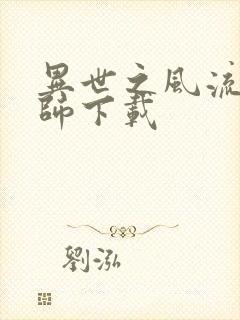 異世之風流
師下載
劉泓